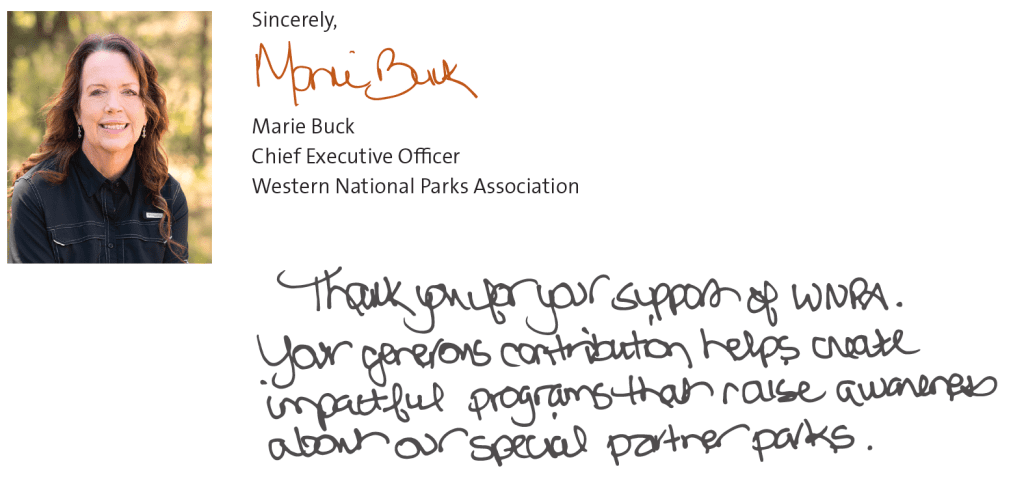 Sincerely,
Marie Buck
Marie Buck
Chief Executive Officer
Western National Parks Association
Thank you for your support of WNPA.
Your generous contribution helps create
impactful programs that raise awareness
about our special partner parks.